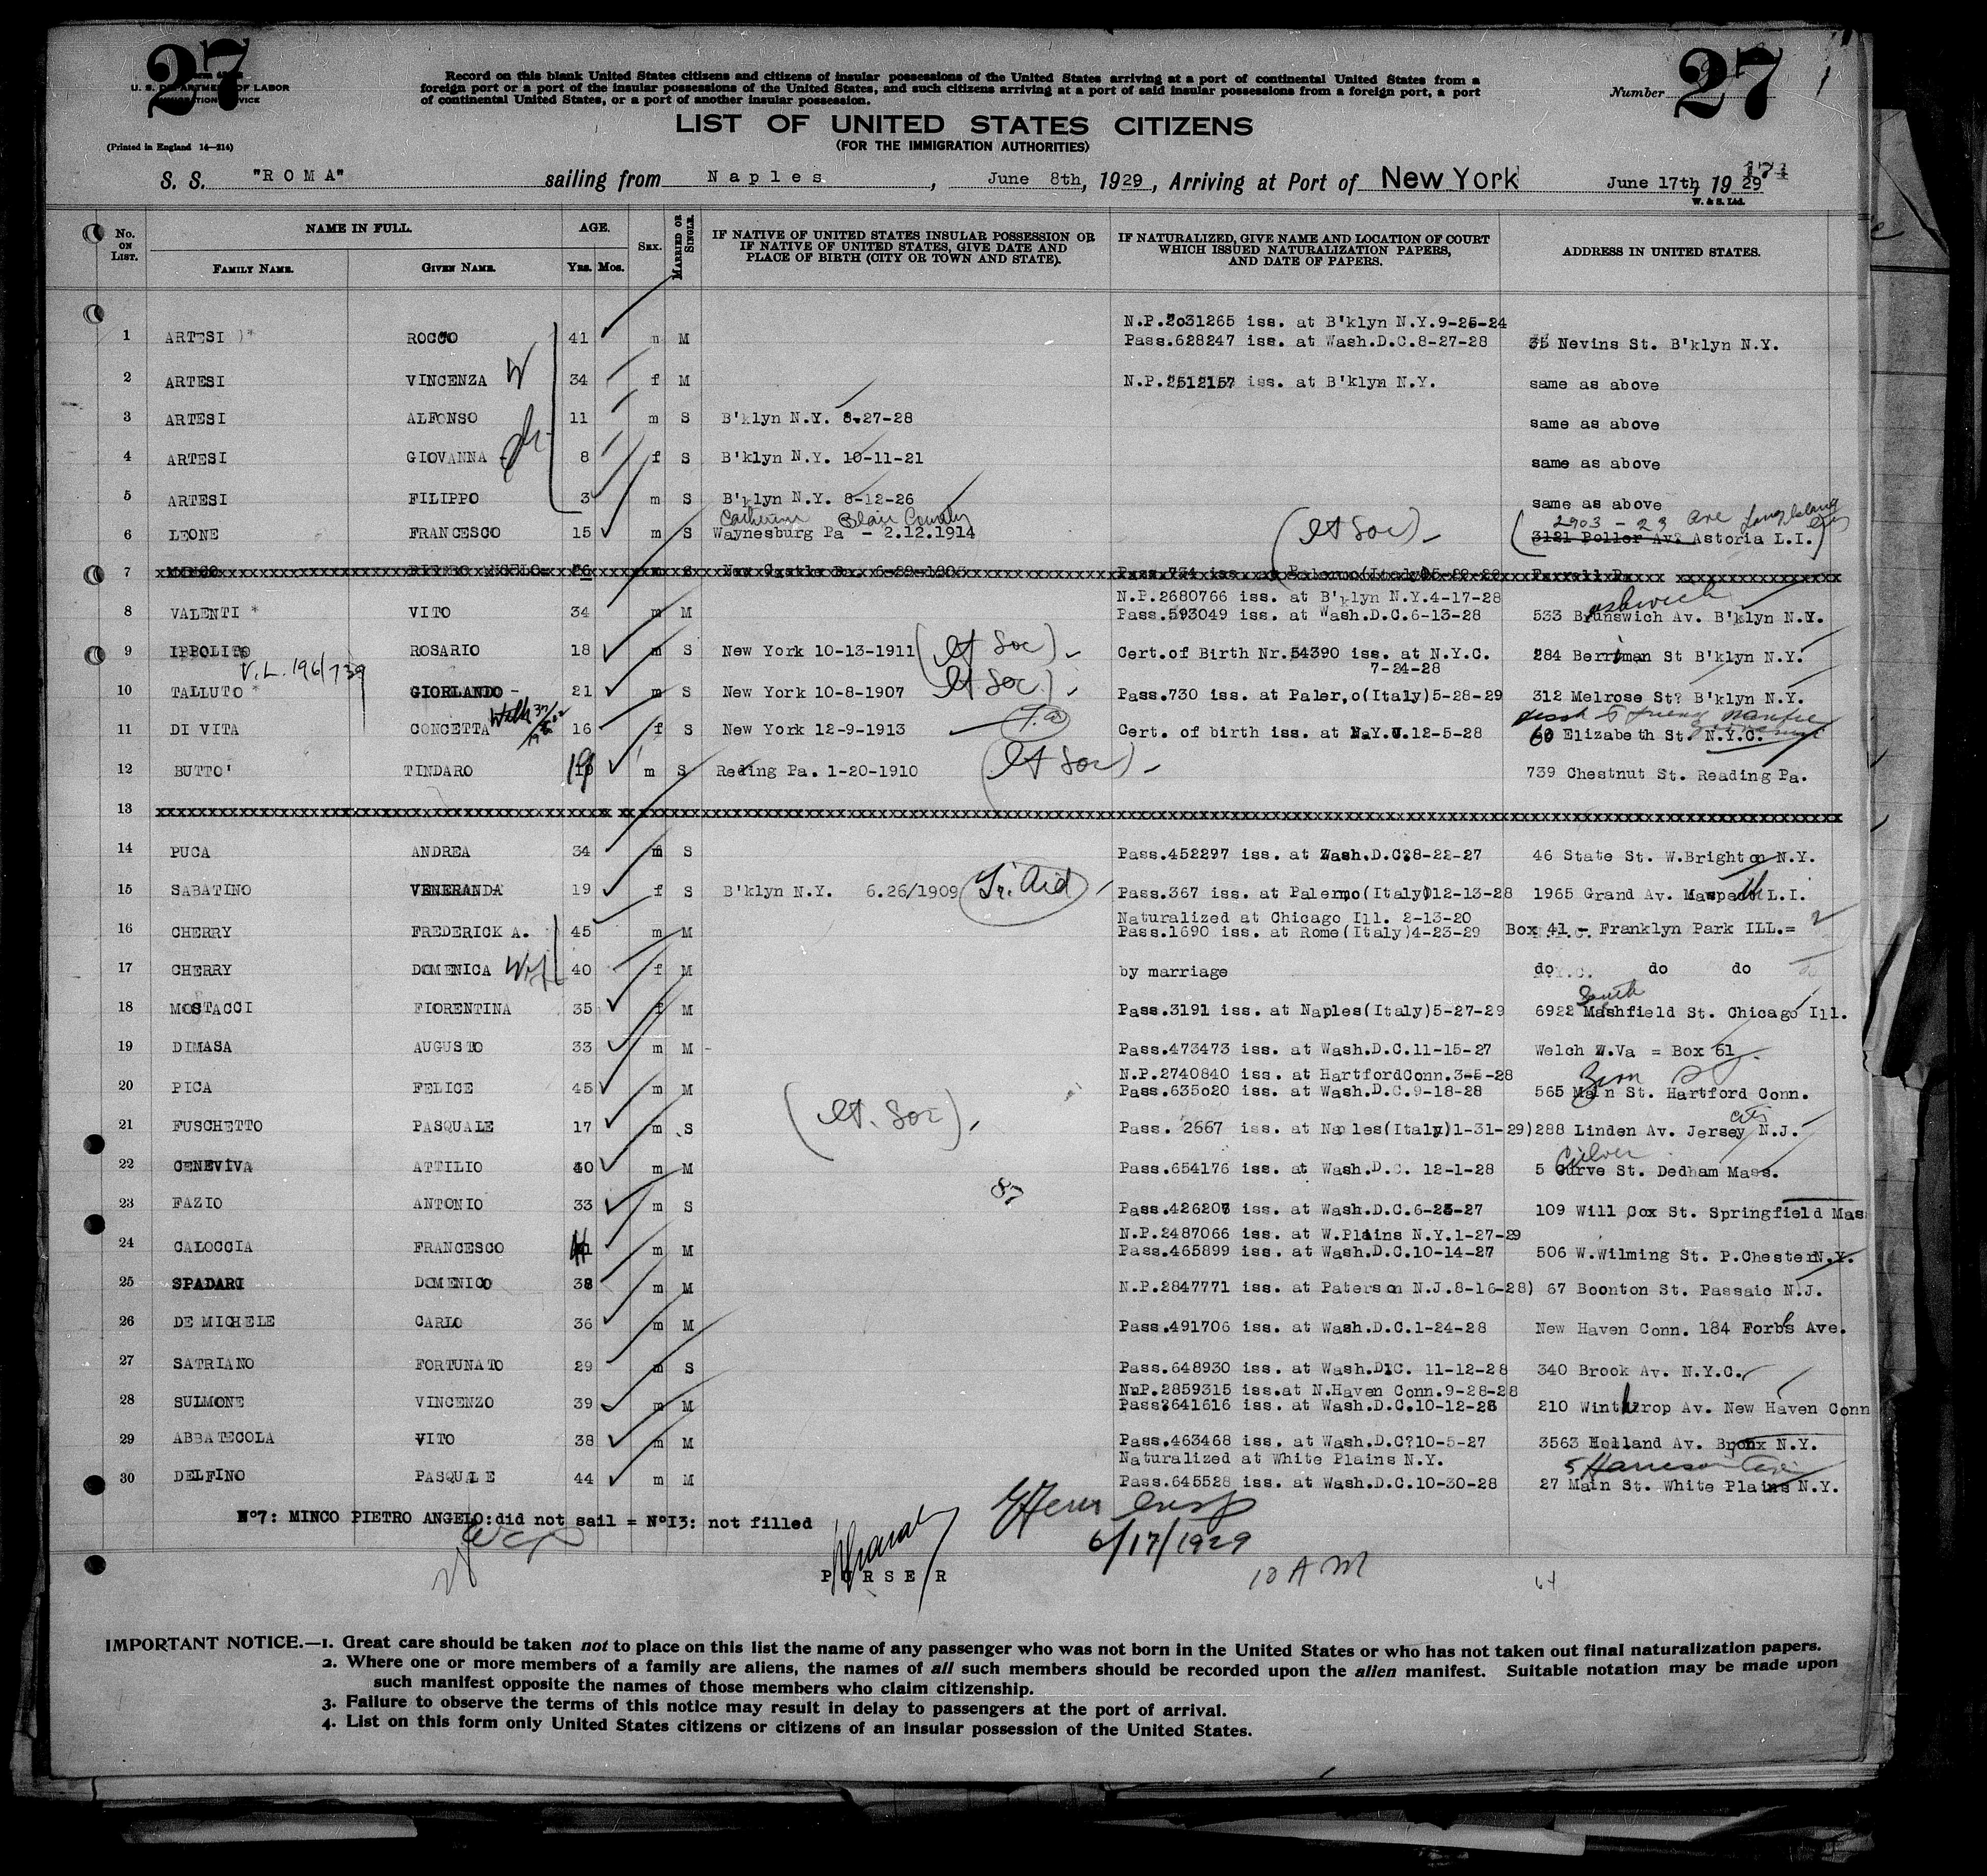 27
27
U. S. DEPARTMENT OF LABOR
Record on this blank United States citizens and citizens of insular possessions of the United States arriving at a port of continental United States from a
foreign port or a port of the insular possessions of the United States, and such citizens arriving at a port of said insular possessions from a foreign port, a port
of continental United States, or a port of another insular possession.
Number
LIST OF UNITED STATES CITIZENS
(FOR THE IMMIGRATION AUTHORITIES)
(Printed in England 14—214)
S. S. "ROMA" sailing from Naples, June 8th, 1929, Arriving at Port of New York June 17th, 1929
W. & S. Ltd.
No. ON LIST. NAME IN FULL. FAMILY NAME. GIVEN NAME. AGE. YRS. MOS. SEX. MARRIED OR SINGLE. IF NATIVE OF UNITED STATES INSULAR POSSESSION OR IF NATIVE OF UNITED STATES, GIVE DATE AND PLACE OF BIRTH (CITY OR TOWN AND STATE). IF NATURALIZED, GIVE NAME AND LOCATION OF COURT WHICH ISSUED NATURALIZATION PAPERS, AND DATE OF PAPERS. ADDRESS IN UNITED STATES.
N.P.2031265 iss. at B'klyn N.Y.9-25-24
1 ARTESI ROCCO 41 m M Pass.628247 iss. at Wash.D.C.8-27-28 35 Nevins St. B'klyn N.Y.
2 ARTESI VINCENZA W 34 f M N.P.2512157 iss. at B'klyn N.Y. same as above
3 ARTESI ALFONSO 11 m S B'klyn N.Y. 8.27-28 same as above
4 ARTESI GIOVANNA 8 f S B'klyn N.Y. 10-11-21 same as above
5 ARTESI FILIPPO 3 m S B'klyn N.Y. 8-12-26 same as above
Catherine Blair County 2903 - 23 Ave Long Island City
6 LEONE FRANCESCO 15 m S Waynesburg Pa - 2.12.1914 (At Soc) 3121 Poller Av? Astoria L.I.
7 MINCO PIETRO ANGELO 26 m S New Castle Pa. 6-29-1903 Pass.734 iss. at Palermo(Italy) Farrell Pa
N.P.2680766 iss. at B'klyn N.Y.4-17-28
8 VALENTI * VITO 34 m M Pass.593049 iss. at Wash.D.C.6-13-28 533 Brunswich Av. B'klyn N.Y.
9 IPPOLITO ROSARIO 18 m S New York 10-13-1911 (At Soc) Cert.of Birth Nr.54390 iss. at N.Y.C. 284 Berriman St B'klyn N.Y.
V.L. 196/739 7-24-28
10 TALLUTO * GIORLANDO 21 m S New York 10-8-1907 (At Soc) Pass.730 iss. at Paler,o(Italy)5-28-29 312 Melrose St? B'klyn N.Y.
11 DI VITA CONCETTA 16 f S New York 12-9-1913 T.a Cert. of birth iss. at N.Y.C.12-5-28 60 Elizabeth St. N.Y.C.
12 BUTTO' TINDARO 19 m S Reding Pa. 1-20-1910 (At Soc) 739 Chestnut St. Reading Pa.
13
14 PUCA ANDREA 34 m S Pass.452297 iss. at Wash.D.C?8-22-27 46 State St. W.Brighton N.Y.
15 SABATINO VENERANDA 19 f S B'klyn N.Y. 6.26/1909 Tr. Aid Pass.367 iss. at Palermo(Italy)12-13-28 1965 Grand Av. Maspeth L.I.
Naturalized at Chicago Ill. 2-13-20
16 CHERRY FREDERICK A. 45 m M Pass.1690 iss. at Rome(Italy)4-23-29 Box 41 - Franklyn Park ILL.=
17 CHERRY DOMENICA Wif 40 f M by marriage do do do
South
18 MOSTACCI FIORENTINA 35 f M Pass.3191 iss. at Naples(Italy)5-27-29 6922 Mashfield St. Chicago Ill.
19 DIMASA AUGUSTO 33 m M Pass.473473 iss. at Wash.D.C.11-15-27 Welch W.Va = Box 61
N.P.2740840 iss. at HartfordConn.3-5-28
20 PICA FELICE 45 m M Pass.635020 iss. at Wash.D.C.9-18-28 565 Main St. Hartford Conn.
21 FUSCHETTO PASQUALE 17 m S (At. Soc) Pass. 2667 iss. at Naples(Italy)1-31-29) 288 Linden Av. Jersey N.J.
Culver
22 GENEVIVA ATTILIO 40 m M Pass.654176 iss. at Wash.D.C. 12-1-28 5 Curve St. Dedham Mass.
87
23 FAZIO ANTONIO 33 m S Pass.426207 iss. at Wash.D.C.6-25-27 109 Will Cox St. Springfield Mas
N.P.2487066 iss. at W.Plains N.Y.1-27-29
24 CALOCCIA FRANCESCO 41 m M Pass.465899 iss. at Wash.D.C.10-14-27 506 W.Wilming St. P.Chester N.Y.
25 SPADARI DOMENICO 38 m M N.P.2847771 iss. at Paterson N.J.8-16-28) 67 Boonton St. Passaic N.J.
26 DE MICHELE CARLO 36 m M Pass.491706 iss. at Wash.D.C.1-24-28 New Haven Conn. 184 Forbs Ave.
27 SATRIANO FORTUNATO 29 m S Pass.648930 iss. at Wash.D.C. 11-12-28 340 Brook Av. N.Y.C.
N.P.2859315 iss.at N.Haven Conn.9-28-28
28 SULMONE VINCENZO 39 m M Pass?641616 iss. at Wash.D.C.10-12-28 210 Winthrop Av. New Haven Conn
29 ABBATECOLA VITO 38 m M Pass.463468 iss. at Wash.D.C?10-5-27 3563 Holland Av. Bronx N.Y.
Naturalized at White Plains N.Y. 5 Harrison Ave
30 DELFINO PASQUALE 44 m M Pass.645528 iss. at Wash.D.C.10-30-28 27 Main St. White Plains N.Y.
N°7: MINCO PIETRO ANGELO:did not sail = N°I3: not filled
6/17/1929
PURSER
10 AM
64
IMPORTANT NOTICE.—1. Great care should be taken not to place on this list the name of any passenger who was not born in the United States or who has not taken out final naturalization papers.
2. Where one or more members of a family are aliens, the names of all such members should be recorded upon the alien manifest. Suitable notation may be made upon
such manifest opposite the names of those members who claim citizenship.
3. Failure to observe the terms of this notice may result in delay to passengers at the port of arrival.
4. List on this form only United States citizens or citizens of an insular possession of the United States.